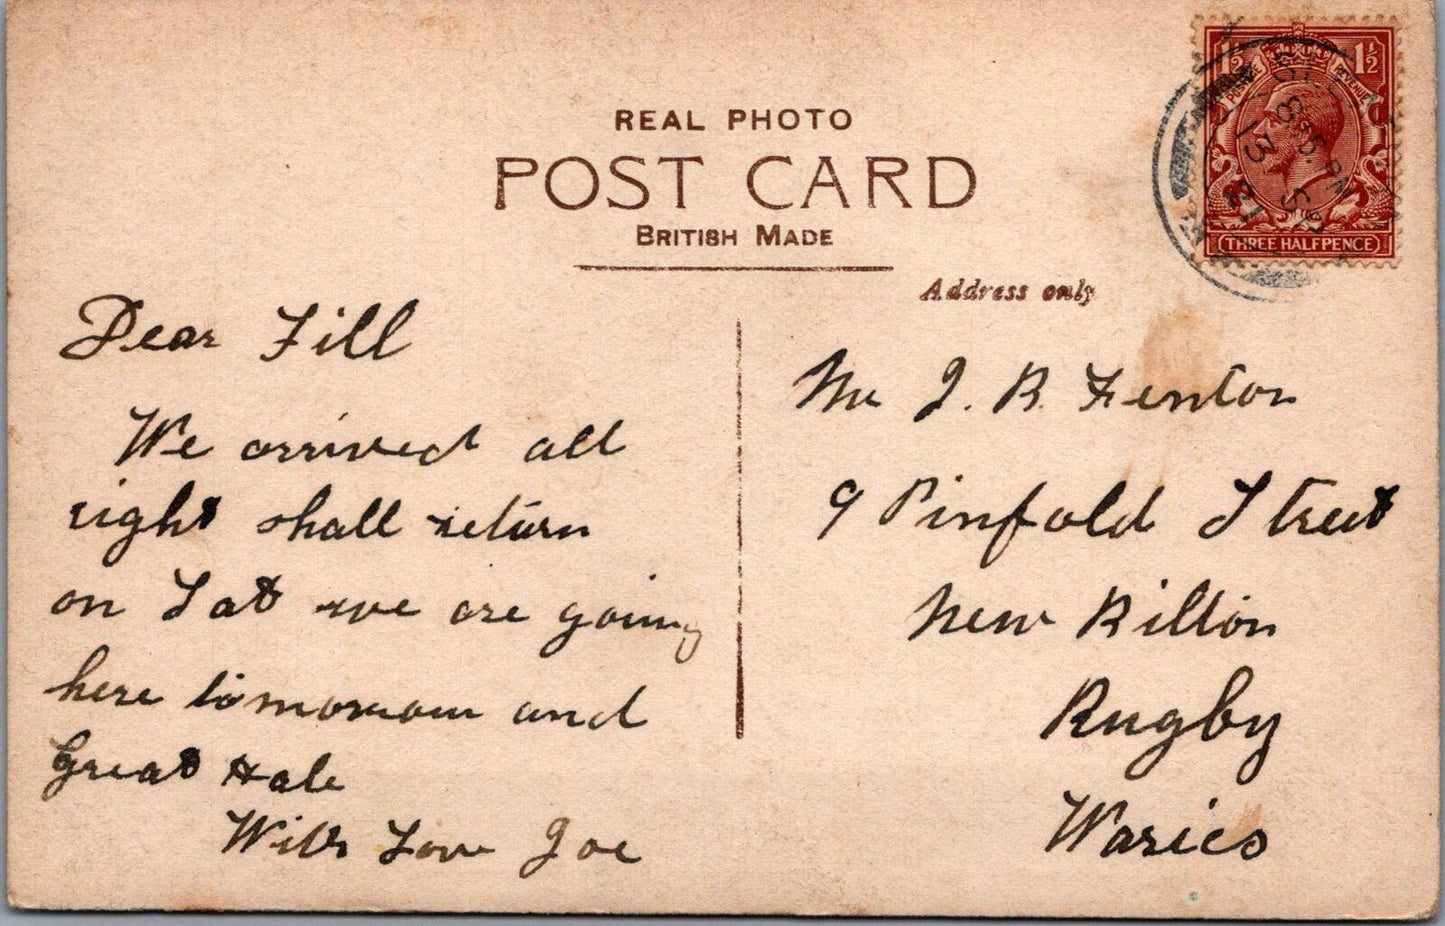 REAL PHOTO
POST CARD
BRITISH MADE
Address only
1½ 1½
POSTAGE REVENUE
THREE HALFPENCE
8.15 PM
13
Dear Fill
We arrived all
right shall return
on Sat we are going
here tomorrow and
Great Hale
With Love Joe
Mr J. R. Fenton
9 Pinfold Street
New Bilton
Rugby